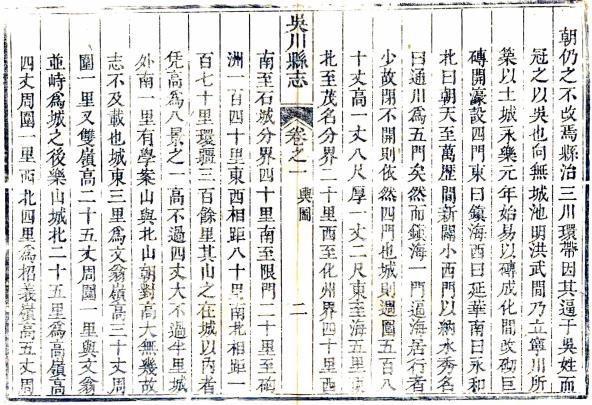 朝仍之不改焉縣治三川環帶因其逼于吳姓而
冠之以吳也向無城池明洪武間乃立寧川所
築以土城永樂元年始易以磚成化間改砌巨
磚開濠設四門東曰鎮海西曰延華南曰永和
北曰朝天至萬歷間新闢小西門以納水秀名
曰通川爲五門矣然而鎮海一門逼海居行者
少故閉不開則依然四門也城則週圍五百八
十丈高一丈八尺厚一丈二尺東至海五里
北至茂名分界二十里西至化州界四十里西
吳川縣志 卷之一 輿圖 二
南至石城分界四十里南至限門二十里至硇
洲一百四十里東西相距八十里南北相距一
百七十里環疆三百餘里其山之在城以內者
凭高爲八景之一高不過四丈大不過半里城
外南一里有學案山與北山朝對高大無幾故
志不及載也城東三里爲文翁嶺高三十丈周
圍一里又雙嶺高二十五丈周圍一里與文翁
並峙爲城之後樂山城北二十五里爲高嶺高
四丈周圍一里西北四里爲招義嶺高五丈周